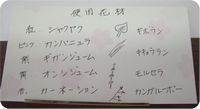 使用花材
紅 シャクヤク
ピンク カンパニュラ
紫 ギガンジューム
黄 オンシジューム
赤 カーネーション
ギボウシ
キキョウラン
モルセラ
カンガルーポー